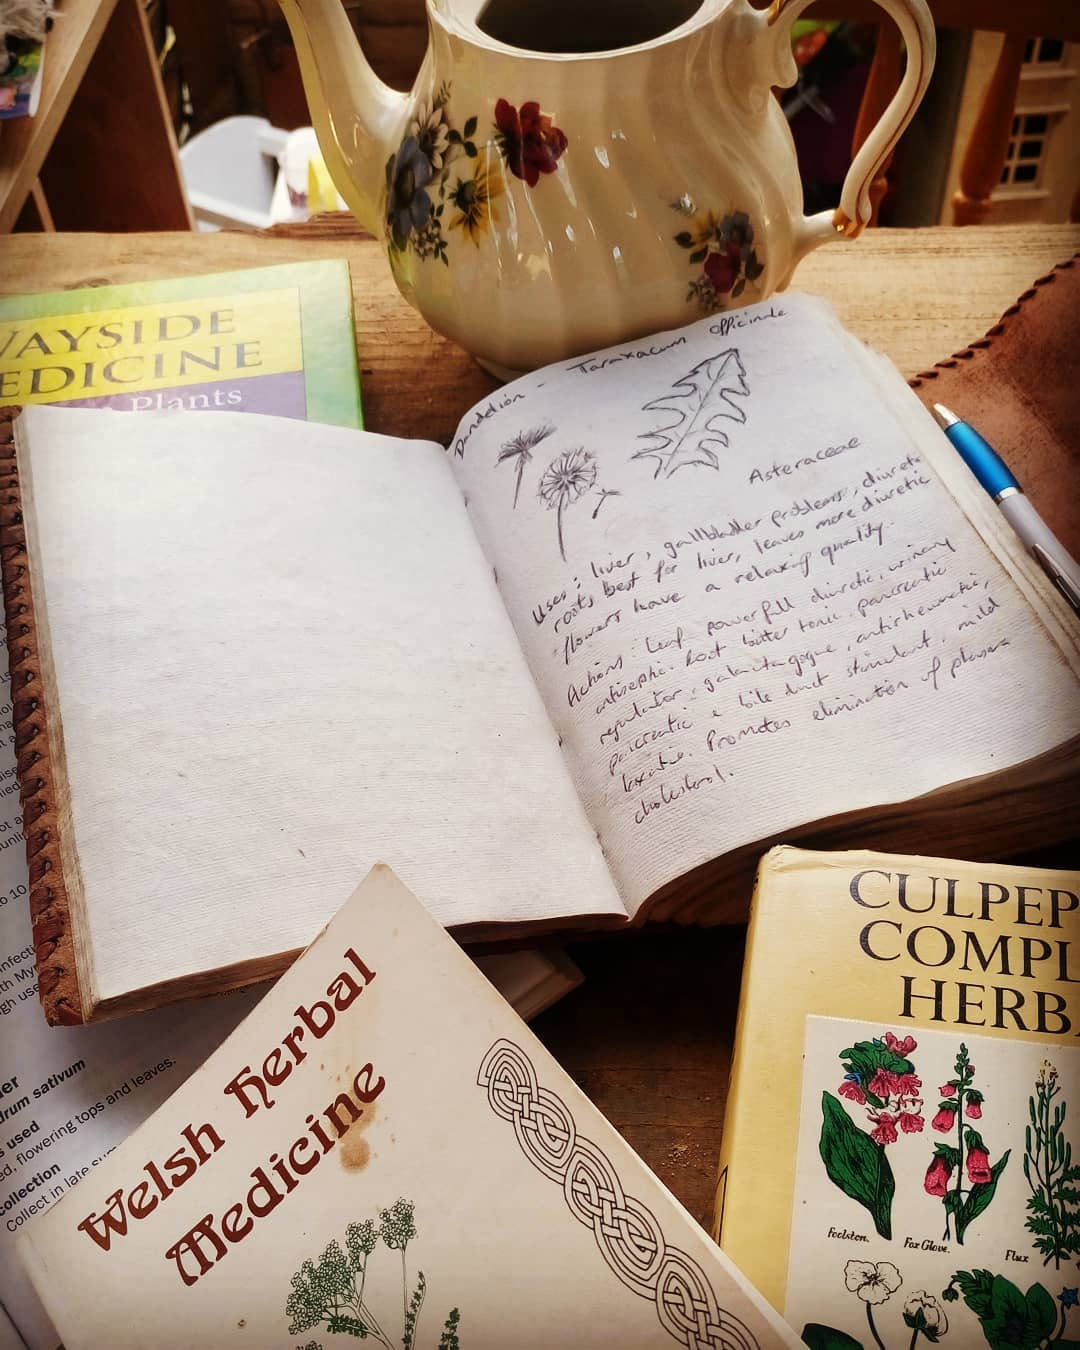 WAYSIDE
MEDICINE
Plants
Dandelion - Taraxacum Officinale
Asteraceae
Uses: liver, gallbladder problems, diuretic
roots best for liver, leaves more diuretic
flowers have a relaxing quality.
Actions: Leaf powerfull diuretic, urinary
antiseptic. Root bitter tonic, pancreatic
regulator, galactagogue, antirheumatic,
pancreatic & bile duct stimulant, mild
laxative. Promotes elimination of plasma
cholesterol.
Welsh Herbal
Medicine
CULPEP
COMPL
HERB
Foolston.
Fox Glove.
Flux
drum sativum
s used
d, flowering tops and leaves.
collection
Collect in late sum